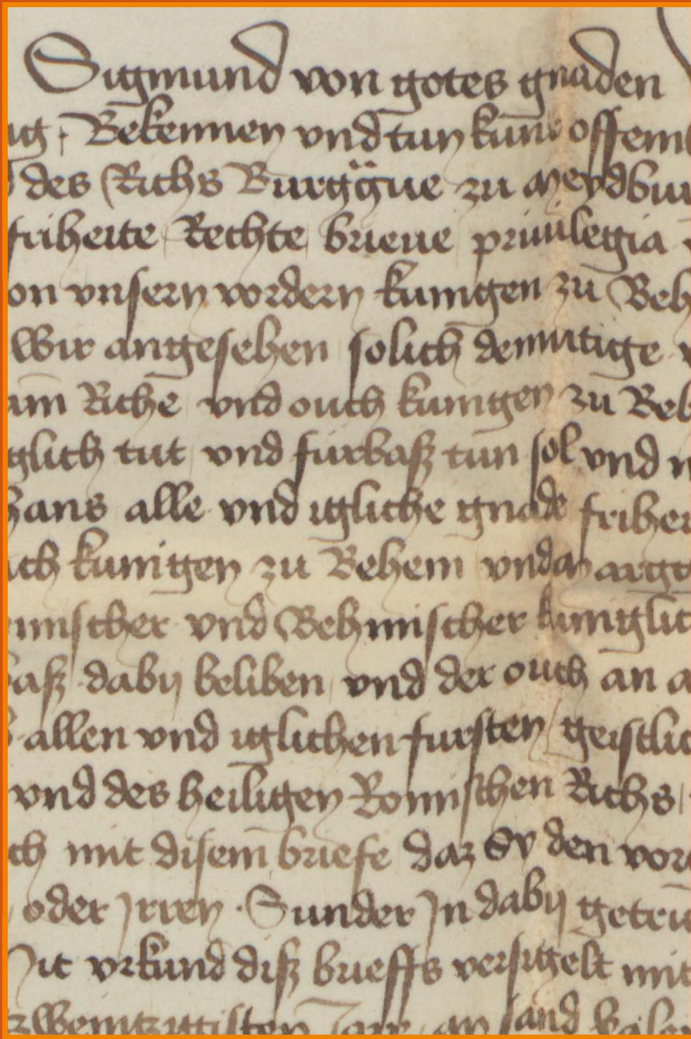 Sigmund von gotes gnaden
ig, Bekennen vnd tun kunt offem
des Richs Burggue zu Meydbur
friheite Rechte brieue priuilegia
on vnsern vordern kunigen zu Beh
Wir angesehen solich demutige
im Riche vnd ouch kunigen zu Beh
glich tut vnd furbasz tun sol vnd
hans alle vnd igliche gnade frihei
ich kunigen zu Behem vnd Margg
mischer vnd Behmischer kuniglic
basz dabij beliben, vnd der ouch an a
allen vnd iglichen fursten geistlic
vnd des heiligen Romischen Richs,
ch mit disem briefe daz Sy den vor
oder Irren. Sunder In dabij getru
Mit vrkund disz brieffs versigelt mit
zweintzigisten Jare, an sand